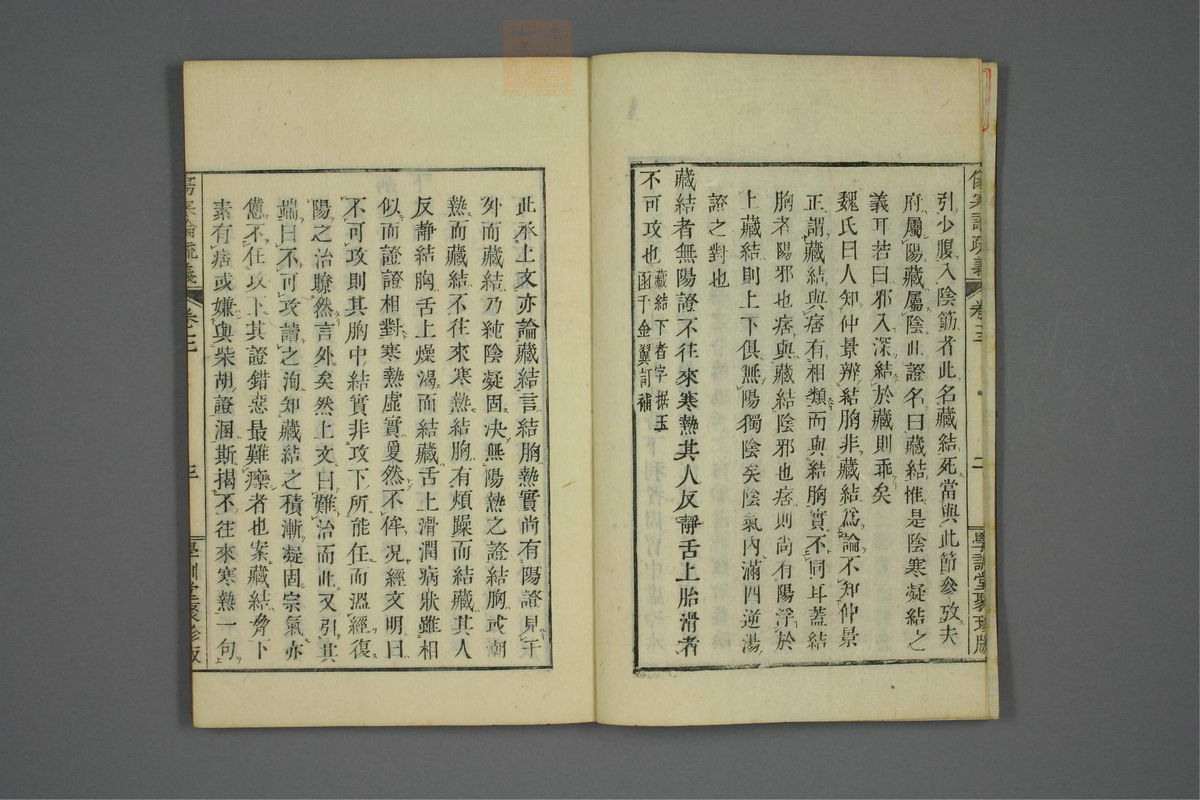 引少腹入陰筋者此名藏結死當與此節參攷夫
府屬陽藏屬陰此證名曰藏結惟是陰寒凝結之
義耳若曰邪入深結於藏則乖矣
魏氏曰人知仲景辨結胸非藏結爲論不知仲景
正謂藏結與痞有相類而與結胸實不同耳蓋結
胸者陽邪也痞與藏結陰邪也痞則尚有陽浮於
上藏結則上下俱無陽獨陰矣陰氣內滿四逆湯
證之對也
藏結者無陽證不往來寒熱其人反靜舌上胎滑者
不可攻也藏結下者字据玉
函千金翼訂補
傷寒論疏義
卷三
二
學訓堂聚珍版
此承上文亦論藏結言結胸熱實尚有陽證見于
外而藏結乃純陰凝固決無陽熱之證結胸或潮
熱而藏結不往來寒熱結胸有煩躁而結藏其人
反靜結胸舌上燥渴而結藏舌上滑潤病狀雖相
似而證證相對寒熱虛實夐然不侔况經文明曰
不可攻則其胸中結實非攻下所能任而溫經復
陽之治瞭然言外矣然上文曰難治而此又引其
端曰不可攻讀之洵知藏結之積漸凝固宗氣亦
憊不任攻下其證錯惡最難療者也案藏結脅下
素有痞或嫌與柴胡證溷斯揭不往來寒熱一句
傷寒論疏義
卷三
三
學訓堂聚珍版